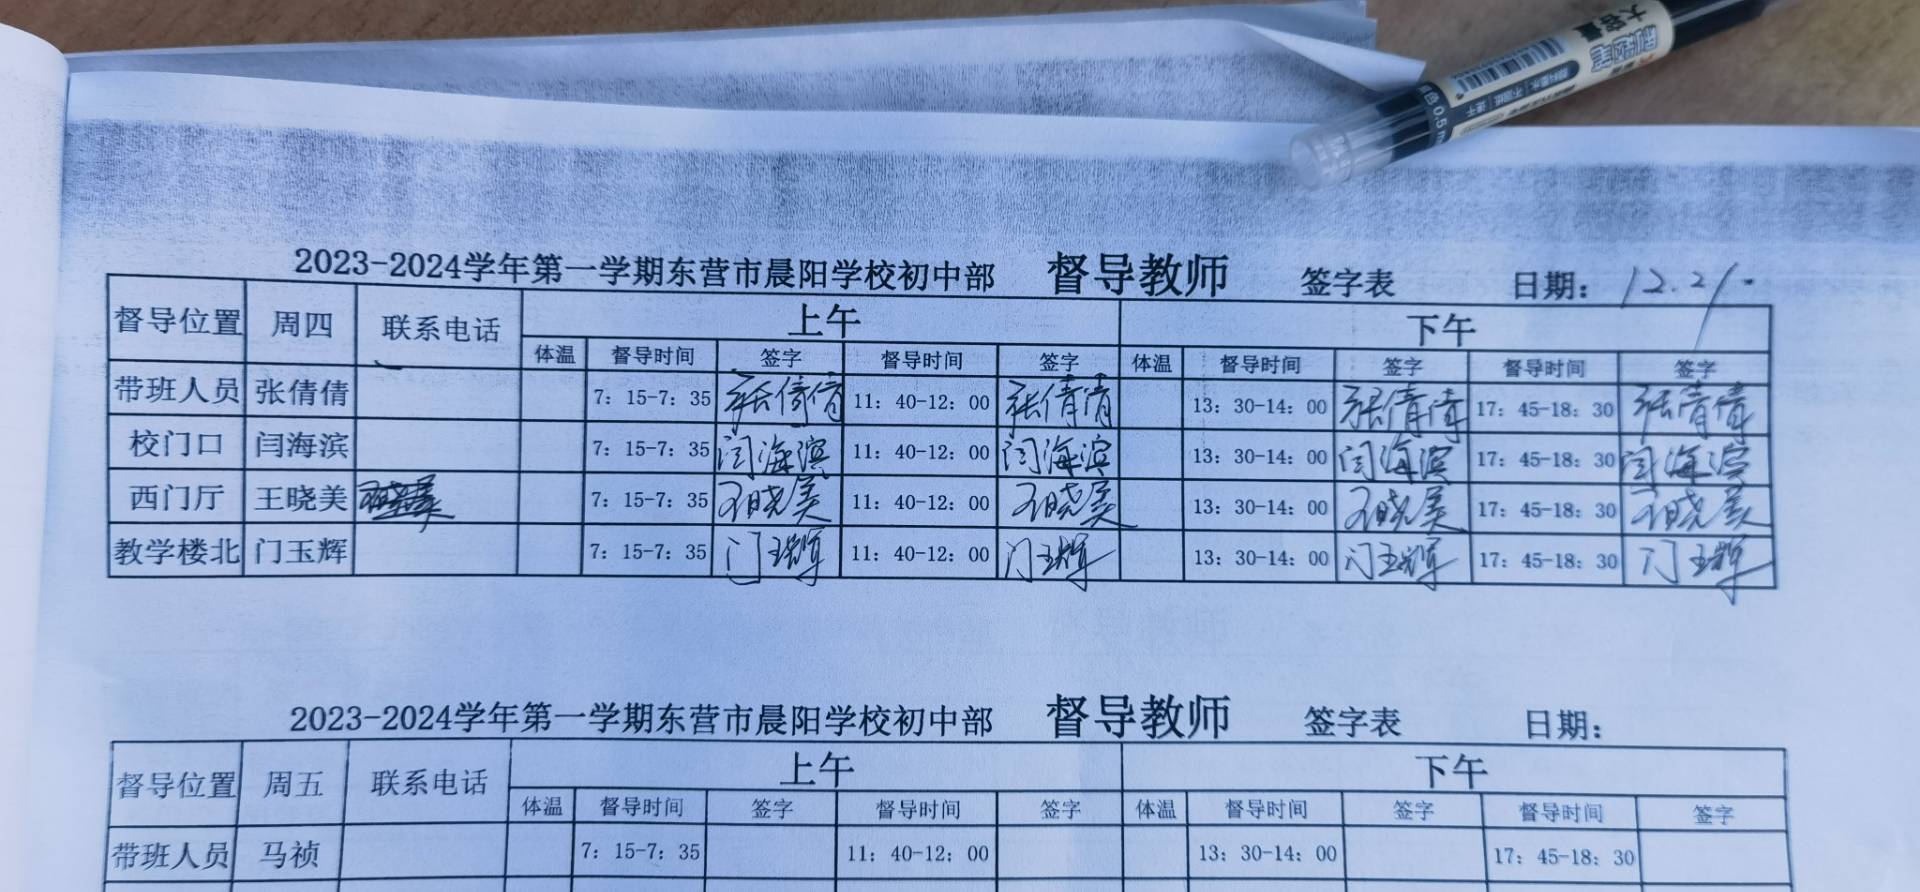 大容量
0.5
2023-2024学年第一学期东营市晨阳学校初中部 督导教师 签字表 日期: 12.21.
督导位置 周四 联系电话 上午 下午
体温 督导时间 签字 督导时间 签字 体温 督导时间 签字 督导时间 签字
带班人员 张倩倩 7: 15-7: 35 张倩倩 11: 40-12: 00 张倩倩 13: 30-14: 00 张倩倩 17: 45-18: 30 张倩倩
校门口 闫海滨 7: 15-7: 35 闫海滨 11: 40-12: 00 闫海滨 13: 30-14: 00 闫海滨 17: 45-18: 30 闫海滨
西门厅 王晓美 7: 15-7: 35 王晓美 11: 40-12: 00 王晓美 13: 30-14: 00 王晓美 17: 45-18: 30 王晓美
教学楼北 门玉辉 7: 15-7: 35 门玉辉 11: 40-12: 00 门玉辉 13: 30-14: 00 门玉辉 17: 45-18: 30 门玉辉
2023-2024学年第一学期东营市晨阳学校初中部 督导教师 签字表 日期:
督导位置 周五 联系电话 上午 下午
体温 督导时间 签字 督导时间 签字 体温 督导时间 签字 督导时间 签字
带班人员 马祯 7: 15-7: 35 11: 40-12: 00 13: 30-14: 00 17: 45-18: 30